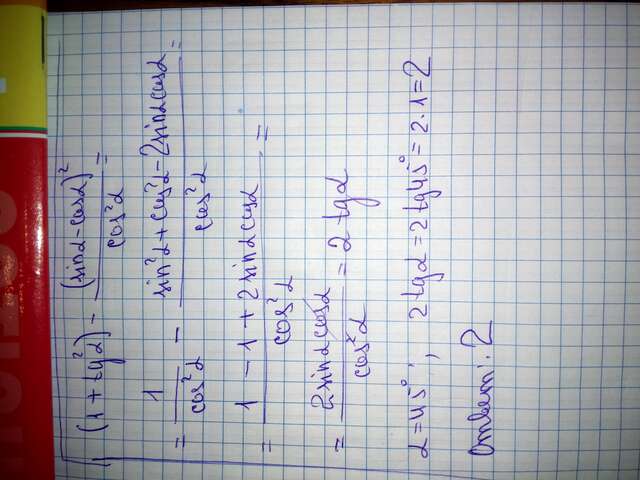 (1 + tg²α) - (sinα - cosα)² / cos²α =
= 1 / cos²α - sin²α + cos²α - 2sinαcosα / cos²α =
= 1 - 1 + 2sinαcosα / cos²α =
= 2sinαcosα / cos²α = 2tgα
α = 45°; 2tgα = 2tg45° = 2·1 = 2
Ответ: 2